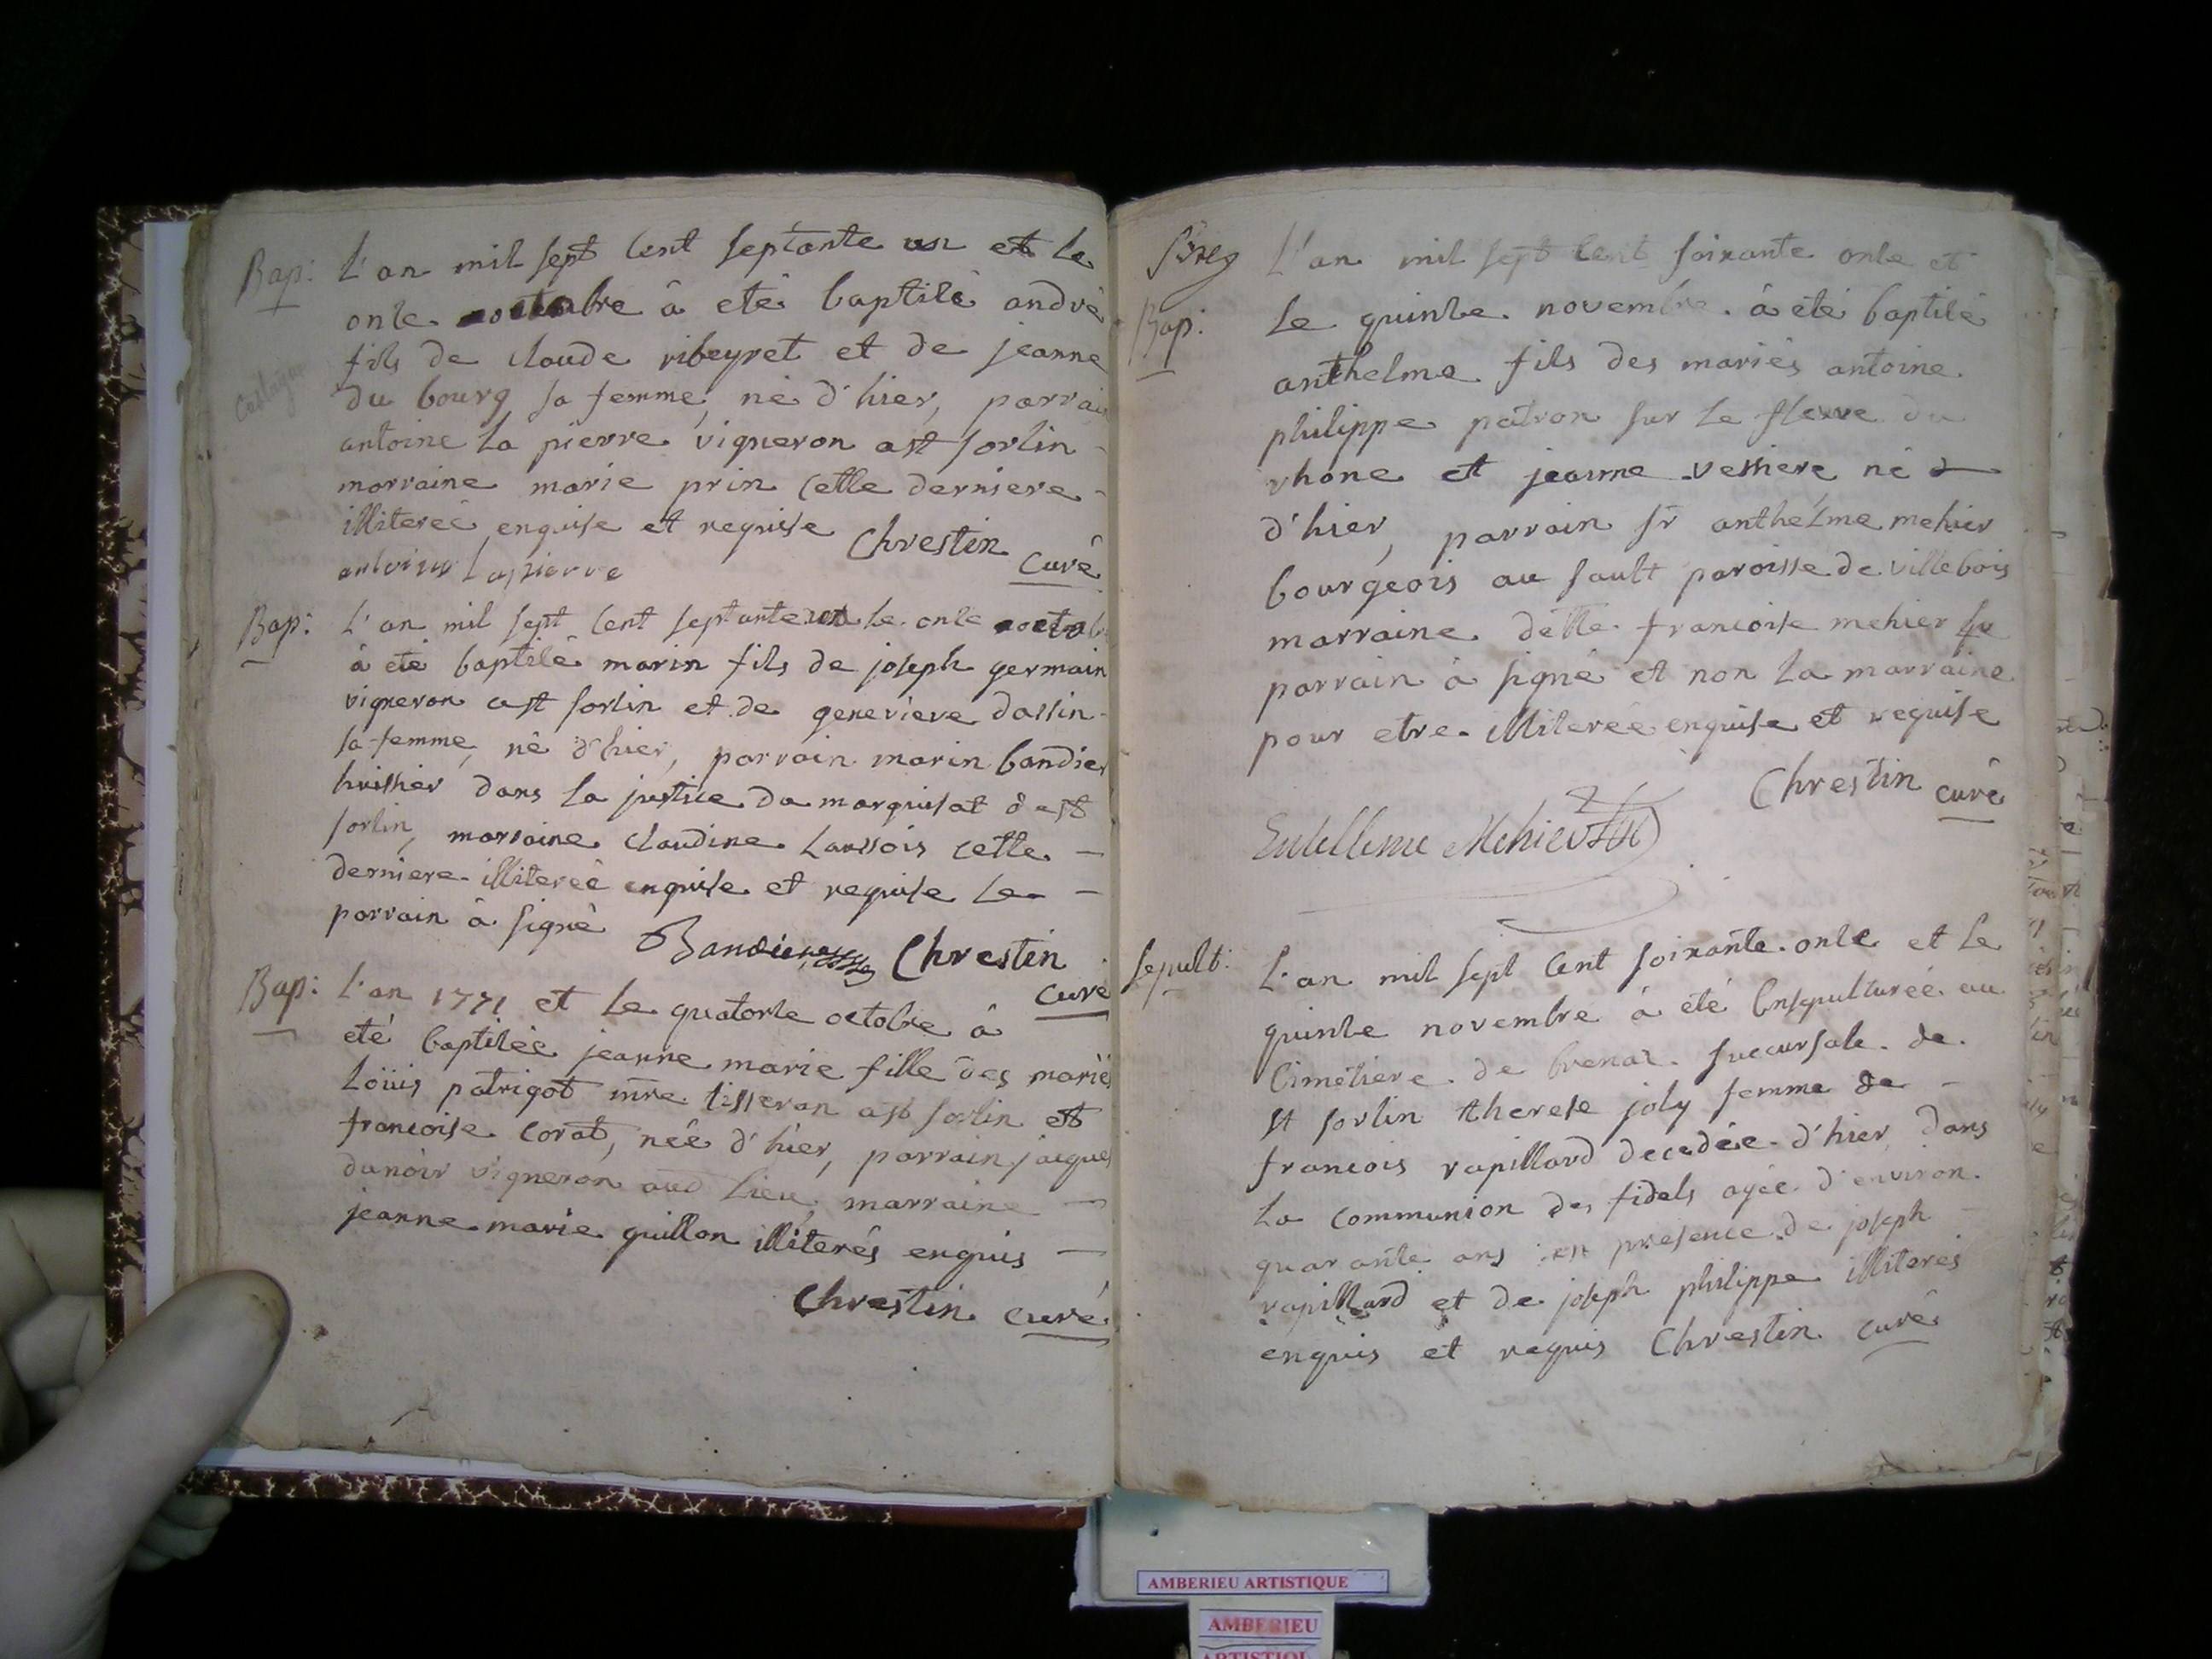 Bap: L'an mil sept cent septante un et le
onze octobre à eté baptizé andré
fils de claude ribeyret et de jeanne
du bourg sa femme, né d'hier, parrain
antoine la pierre vigneron a st sorlin
marraine marie prin cette derniere
illiterée enquise et requise Chrestin
curé
antoine Lapierre
Bap: L'an mil sept cent septante un le onze octobre
à eté baptizé marin fils de joseph germain
vigneron a st sorlin et de genevieve dassin
sa femme, né d'hier, parrain marin bandier
huissier dans la justice du marquisat de st
sorlin, marraine claudine laussois cette
derniere illiterée enquise et requise le
parrain à signé Bandier Chrestin
curé
Bap: L'an 1771 et le quatorze octobre à
eté baptizée jeanne marie fille des mariés
Loüis patrigot mre tisseran a st sorlin et
francoise corat, née d'hier, parrain jaques
dunoir vigneron aud lieu, marraine
jeanne marie guillon illiterés enquis
Chrestin curé
L'an mil sept cent soixante onze et
Bap: le quinze novembre à été baptizé
anthelme fils des mariés antoine
philippe patron sur le fleuve du
rhone et jeanne vessiere né
d'hier, parrain sr anthélme mehier
bourgeois au sault paroisse de villebois
marraine delle francoise mehier le
parrain à signé et non la marraine
pour etre illiterée enquise et requise
Chrestin curé
Mehier
sepult: L'an mil sept cent soixante onze et le
quinze novembre à été ensepulturée au
cimetiere de brenaz succursale de
st sorlin therese joly femme de
francois rapillard decedée d'hier dans
la communion des fidels agée d'environ
quarante ans en presence de joseph
rapillard et de joseph philippe illiterés
enquis et requis Chrestin curé
AMBERIEU ARTISTIQUE
AMBERIEU
ARTISTIQUE